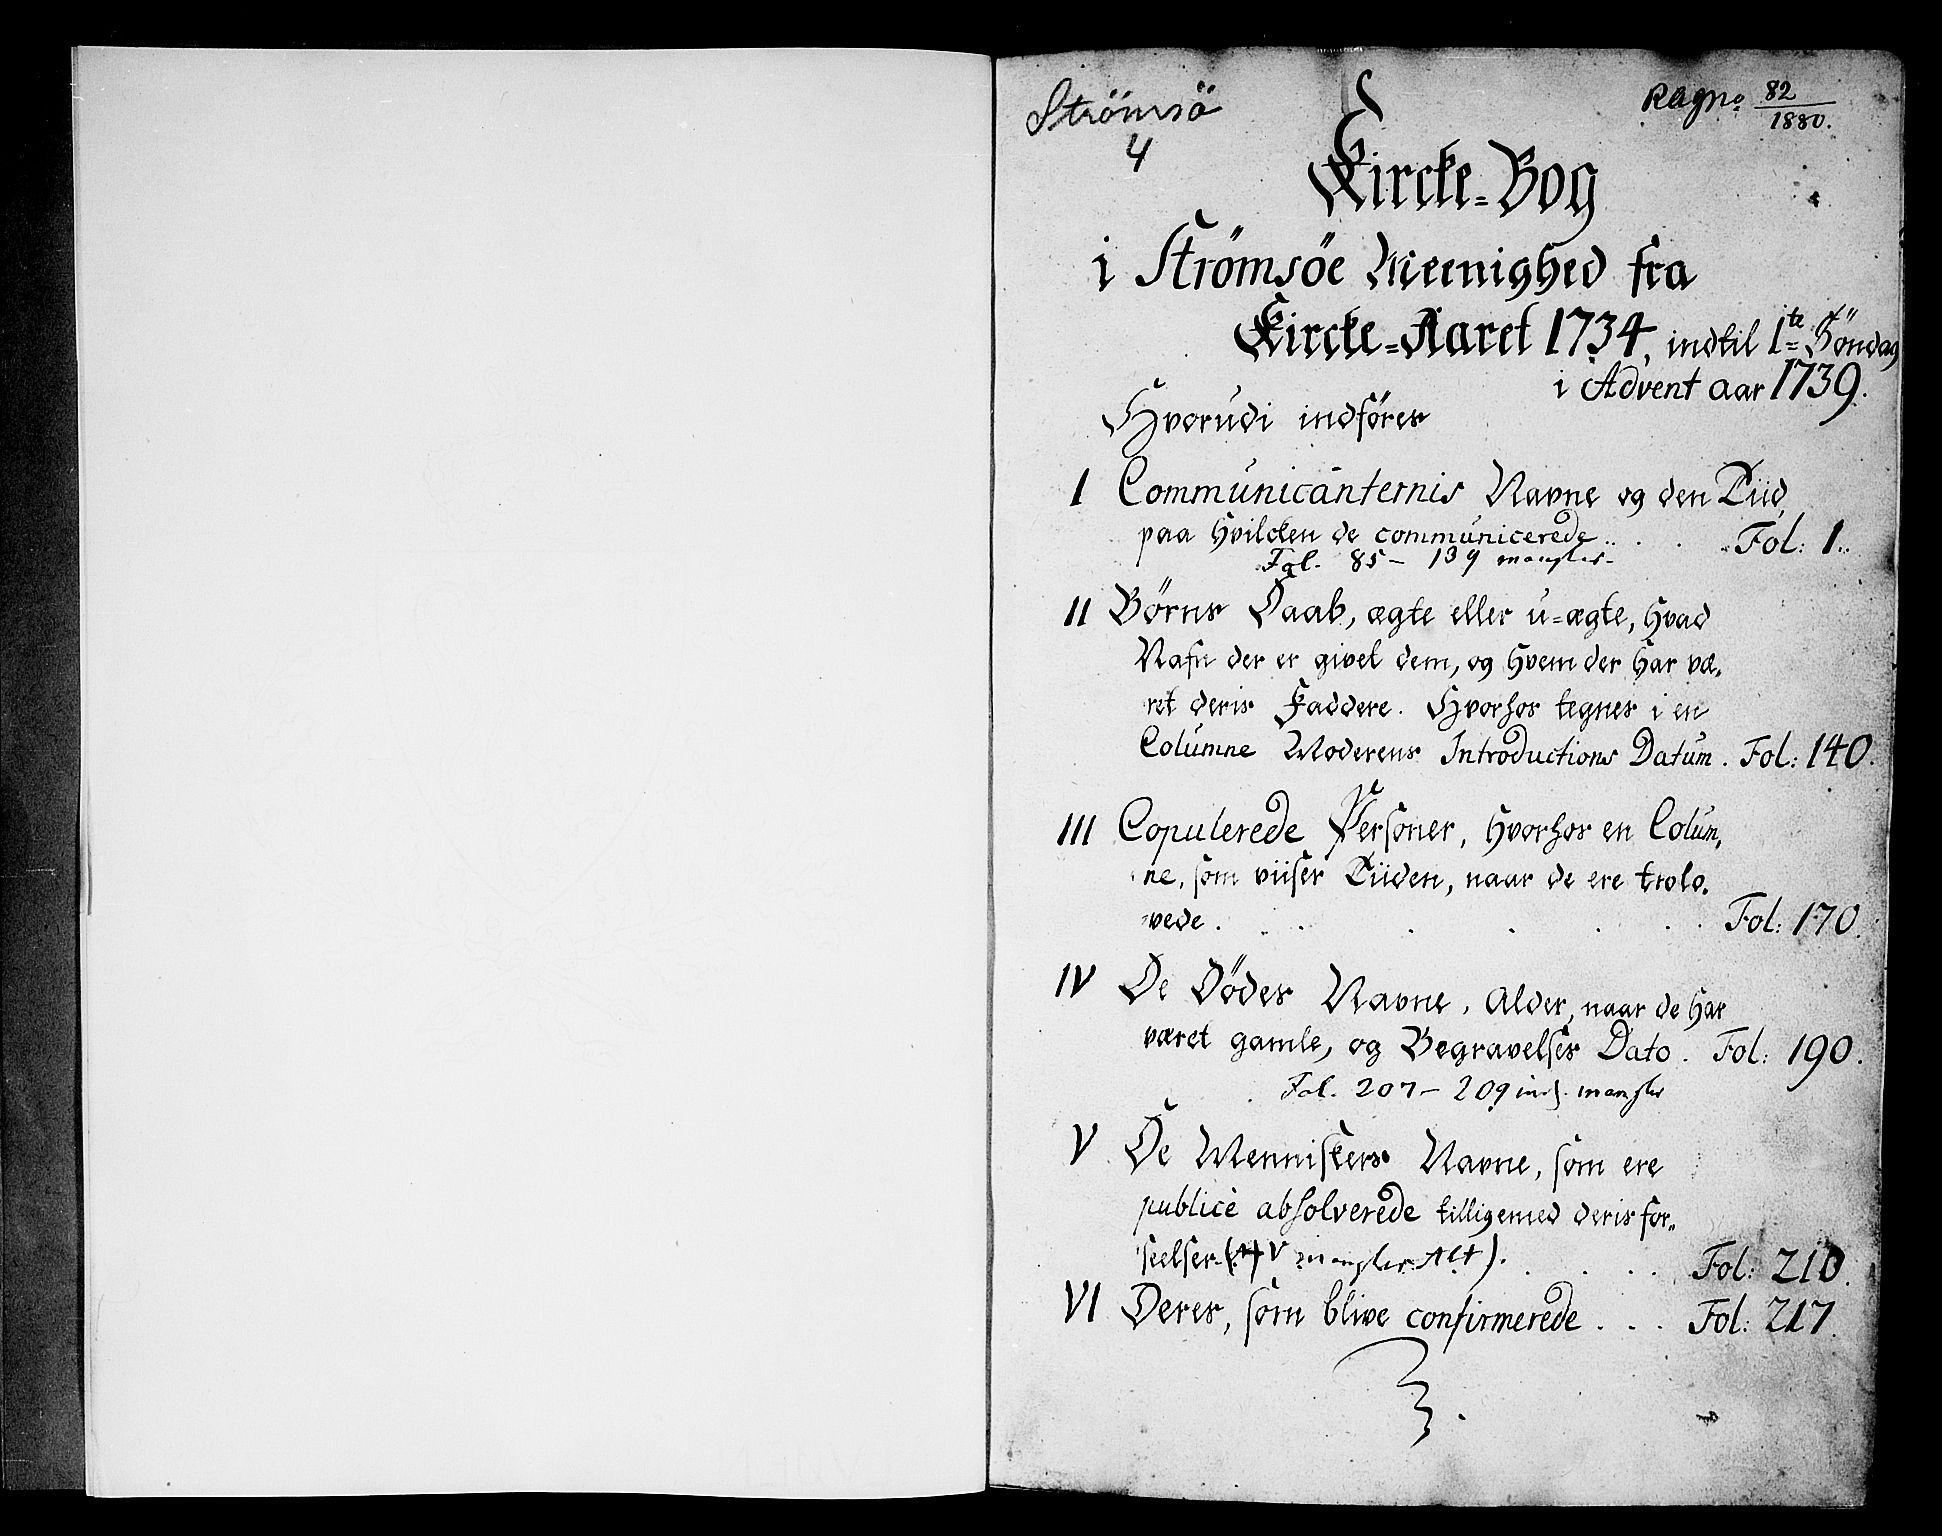 Strömsö
4
Ragno 82/1880.
Kircke-Bog
i Strömsöe Meenighed fra
Kircke-Aaret 1734, indtil 1te Söndag
i Advent aar 1739.
Hvorudi indföres
I Communicanternis Navne og den Tiid,
paa hvilcken de communicerede . . . Fol: 1.
Fol. 85 – 139 mangler.
II Börns Daab, ægte eller u-ægte, hvad
Nafn der er givet dem, og hvem der har væ-
ret deris Faddere. Hvorhos tegnes i en
Columne Moderens Introductions Datum. Fol: 140.
III Copulerede Personer, hvorhos en Colum-
ne, som viiser Tiiden, naar de ere trolo-
vede . . . . . . . Fol: 170.
IV De Dödes Navne, Alder, naar de har
været gamle, og Begravelses Dato. Fol: 190.
Fol. 207 – 209 incl. mangler
V De Menniskers Navne, som ere
publicè absolverede tilligemed deris for-
seelser (V mangler Alt). . . . . Fol: 210.
VI Deres, som blive confirmerede . . . Fol: 217.